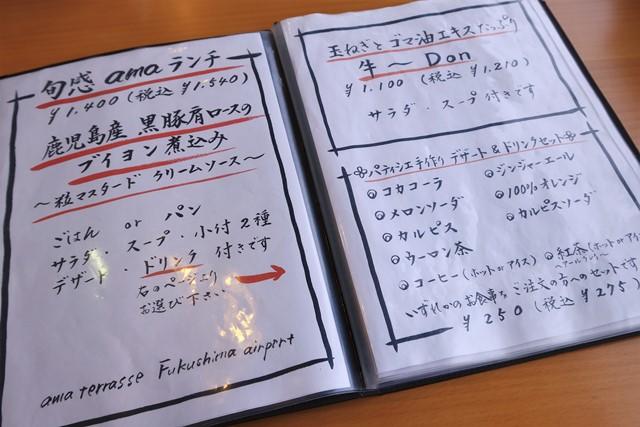 旬感 ama ランチ
¥1.400 (税込 ¥1.540)
鹿児島産 黒豚肩ロースの
ブイヨン煮込み
～粒マスタード クリームソース～
ごはん or パン
サラダ・スープ・小付2種
デザート・ドリンク 付きです
右のページより
お選び下さい
ama terrasse Fukushima airport
玉ねぎと ゴマ油エキスたっぷり
牛～Don
¥1.100 (税込 ¥1.210)
サラダ・スープ付きです
パティシエ手作り デザート&ドリンクセット
コカコーラ
メロンソーダ
カルピス
ウーロン茶
コーヒー (ホット or アイス)
ジンジャーエール
100% オレンジ
カルピスソーダ
紅茶 (ホット or アイス)
～アールグレイ～
いずれかのお食事をご注文の方へのセットです
¥250 (税込 ¥275)